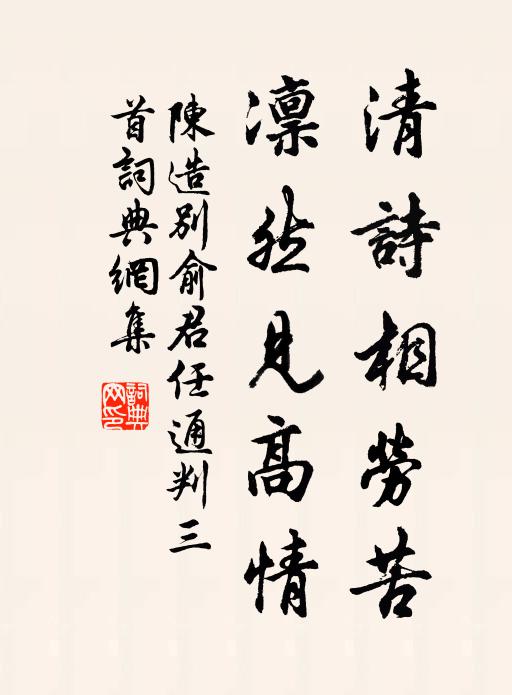 清詩相勞苦
凛然見高情
陳造別俞君任通判三
首詞典網集
詞典
网印